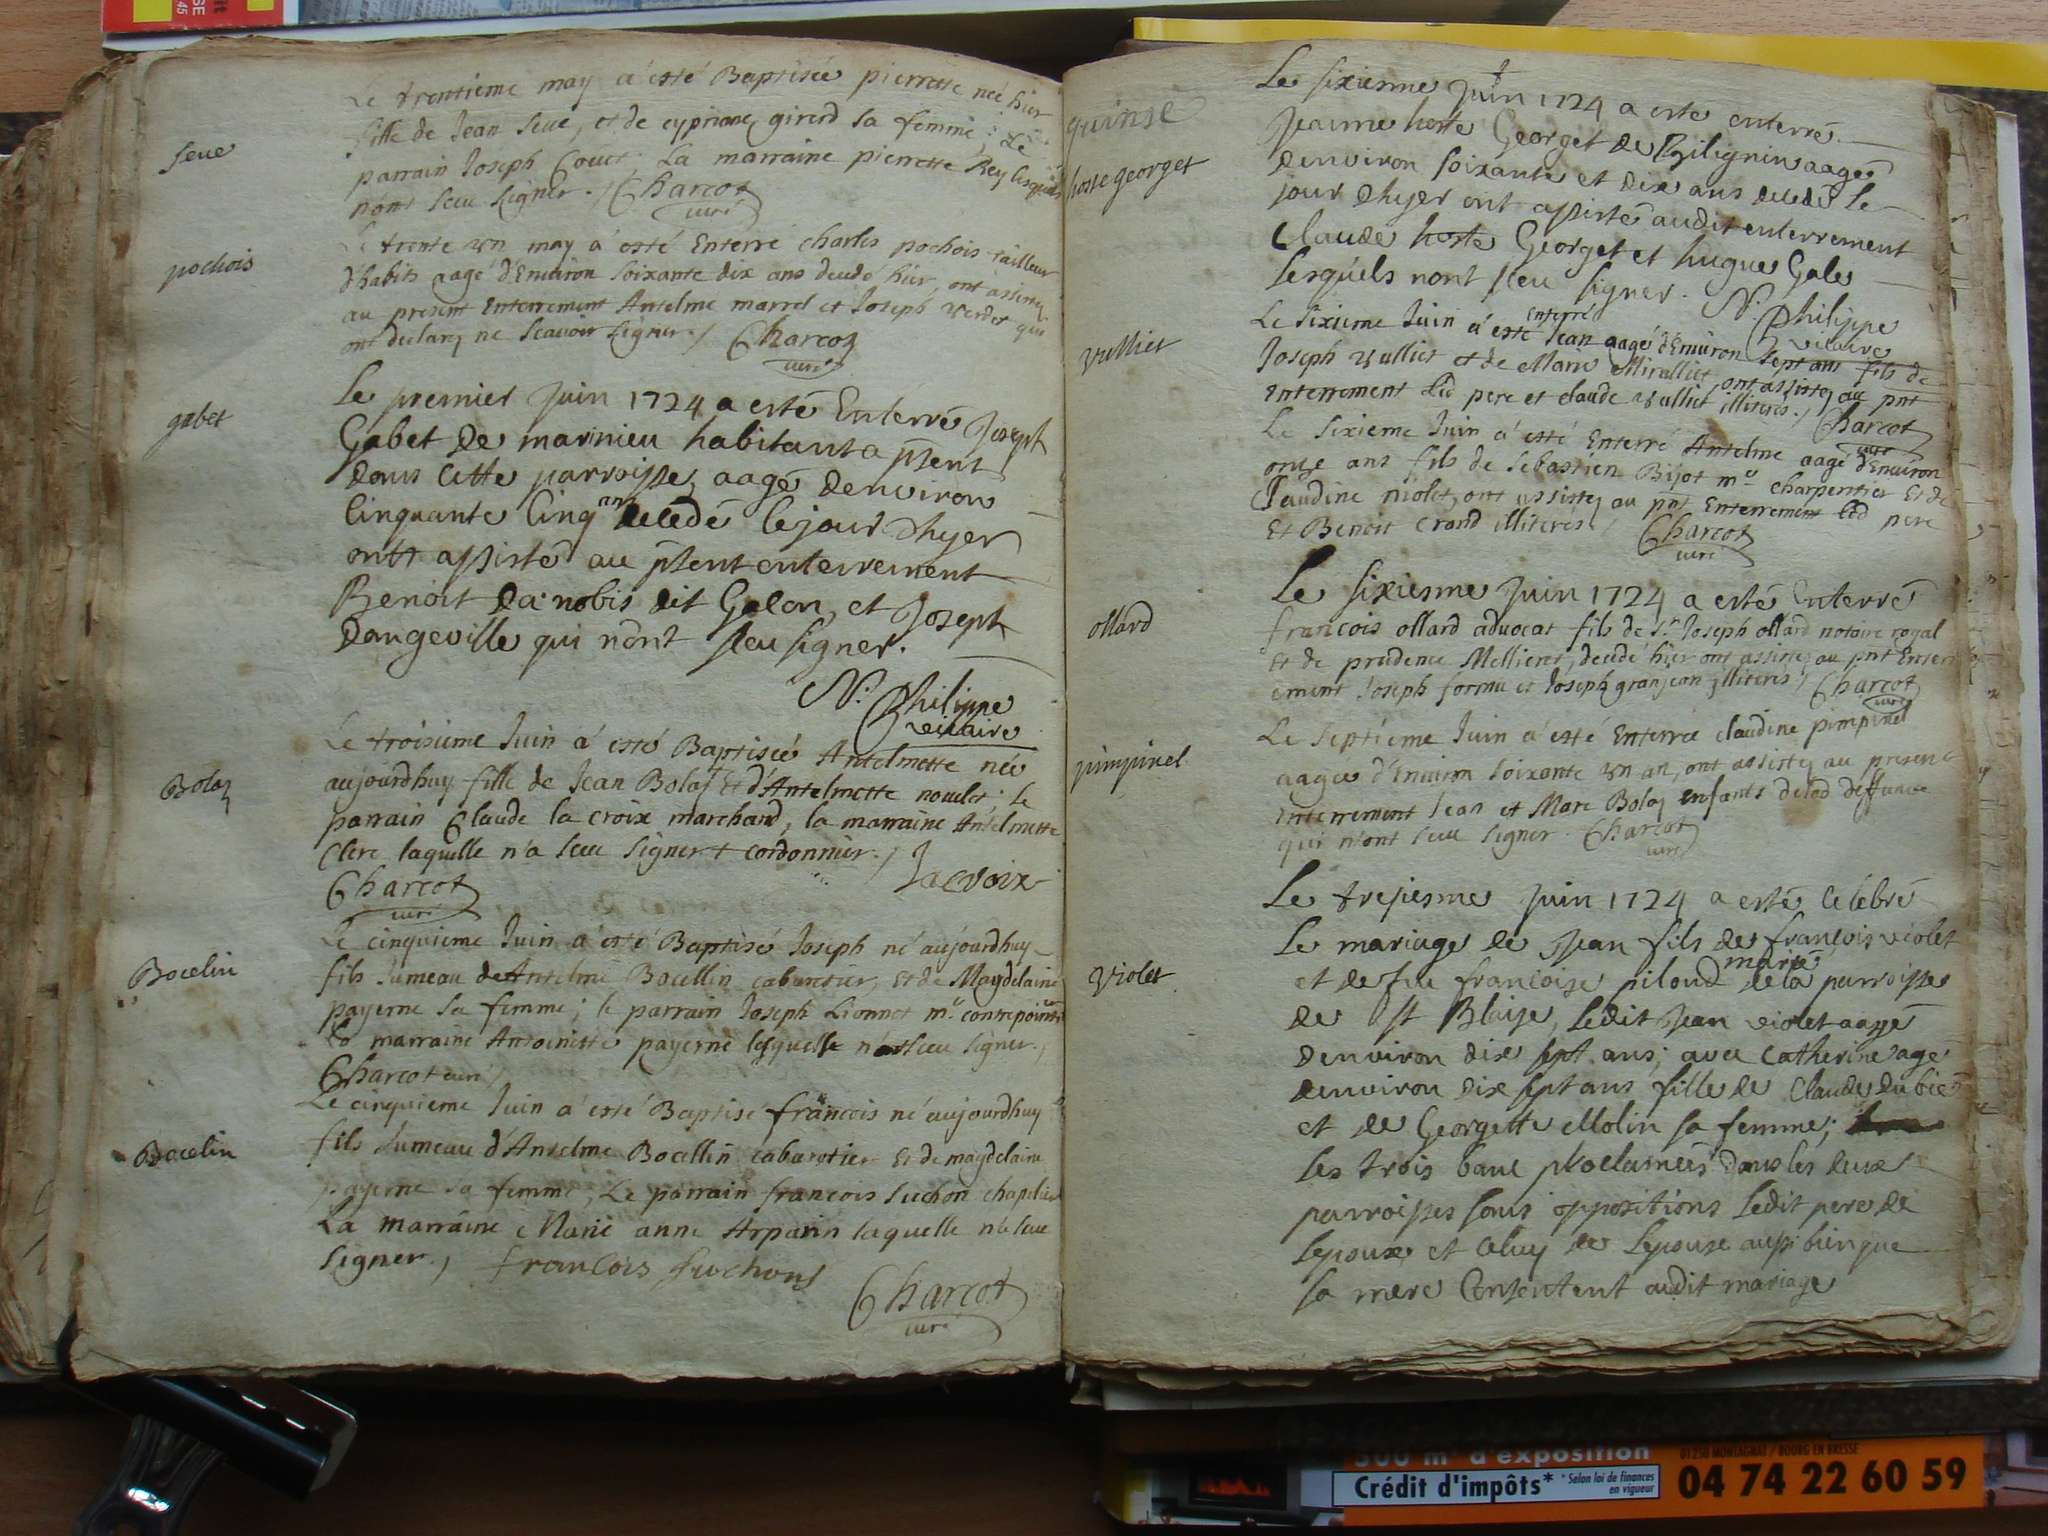 Le trentieme may a esté Baptisée pierrette née hier
fille de Jean Seve, et de cypriane girerd sa femme; Le
parrain Joseph La marraine pierrette Rey lesquels
nont sceu signer. / Charcot
curé
Seve
Le trente un may a esté Enterré charles pochois tailleur
d'habits aagé d'Environ soixante dix ans decedé hier, ont assistez
au present Enterrement Antelme marrel et Joseph verdet qui
ont declaré ne scavoir signer. / Charcot
curé
pochois
Le premier Juin 1724 a esté Enterré Joseph
Gabet de marinieu habitant a pñent
dans cette parroisse, aagé denviron
Cinquante Cinq ans decedé le jour dhyer
ont assisté au pñent enterrement
Benoit da nobis dit Galon, et Joseph
Dangeville qui nont sceu signer.
N. Philippe
vicaire
gabet
Le troisieme Juin a esté Baptisée Antelmette née
aujourdhuy fille de Jean Bolaz Et d'Antelmette novelet; le
parrain Claude la croix marchand, la marraine Antelmette
Clerc laquelle n'a sceu signer + cordonnier. / Lacroix
Charcot
curé
Bolaz
Le cinquieme Juin a esté Baptisé Joseph né aujourdhuy
fils Jumeau de Antelme Bocellin cabaretier, Et de Magdelaine
payerne sa femme; le parrain Joseph Lionnet mre contrepointier
la marraine Antoinette payerne lesquelle n'a sceu signer. /
Charcot curé /
Bocelin
Le cinquieme Juin a esté Baptisé francois né aujourdhuy
fils Jumeau d'Antelme Bocellin cabaretier Et de magdelaine
payerne sa femme, Le parrain francois Suchon chapelier
La marraine Marie anne Arparin laquelle n'a sceu
signer, / francois Suchons
Charcot
curé
Bocelin
quinse
Le sixiesme Juin 1724 a esté enterré
Jeanne hoste Georget de Bilignin aagée
denviron soixante et dix ans decedé le
jour dhyer ont assisté audit enterrement
Claude hoste Georget et hugue Gale
lesquels nont sceu signer. N. Philippe
vicaire
hoste georget
Le sixieme Juin a esté Enterré Jean aagé d'Environ sept ans fils de
Joseph vulliet et de Marie Mirallier, ont assistez au pnt
Enterrement led pere et claude vulliet illiteres. / Charcot
curé
vulliet
Le sixieme Juin a esté Enterré Antelme aagé d'Environ
onze ans fils de Sebastien Bijot mre charpentier Et de
Claudine niolet, ont assistez au pnt Enterrement led pere
Et Benoit Crand illiteres / Charcot
curé
Le sixiesme Juin 1724 a esté Enterré
francois ollard advocat fils de Sr Joseph ollard notaire royal
Et de prudence Mellieret, decedé hier ont assistez au pnt Enterr
ement Joseph formu et Joseph granjeon illiteres / Charcot
curé
ollard
Le septieme Juin a esté Enterrée claudine pimpinel
aagée d'Environ soixante un an, ont assistez au present
Enterrement Jean et Marc Bolaz enfants de lad deffunte
qui n'ont sceu signer. Charcot
curé
pimpinel
Le treziesme Juin 1724 a esté Celébré
Le mariage de Jean fils de francois violet
et de feu francoise piloud mariés de la parroisse
de St Blaise, ledit Jean violet aagé
denviron dix sept ans; avec Catherine agé
denviron dix sept ans fille de Claude dubié
et de Georgette Molin sa femme;
les trois banc proclameés dans les deux
parroisses sans oppositions Ledit pere de
lepoux et celuy de lepouse aussi bien que
sa mere Consentent audit mariage
violet
500 m² d'exposition
01250 MONTAGNAT / BOURG EN BRESSE
Crédit d'impôts* * Selon loi de finances en vigueur
04 74 22 60 59